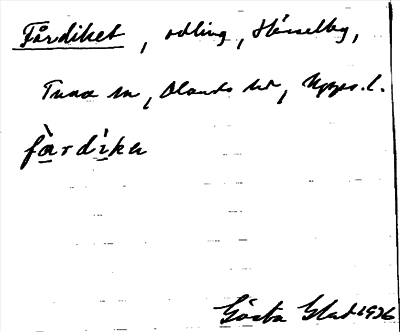 Fårdiket, odling, Hässelby,
Tuna sn, Olands hd, Upps. l.
fàrdìkǝ
Gösta Glad 1936